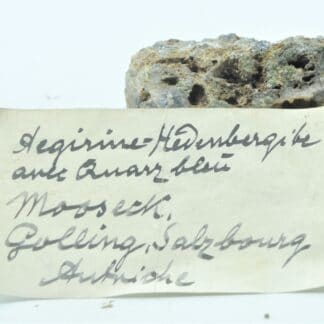 Aegirine-Hedenbergite
avec Quarz bleu
Mooseck,
Golling, Salzbourg
Autriche